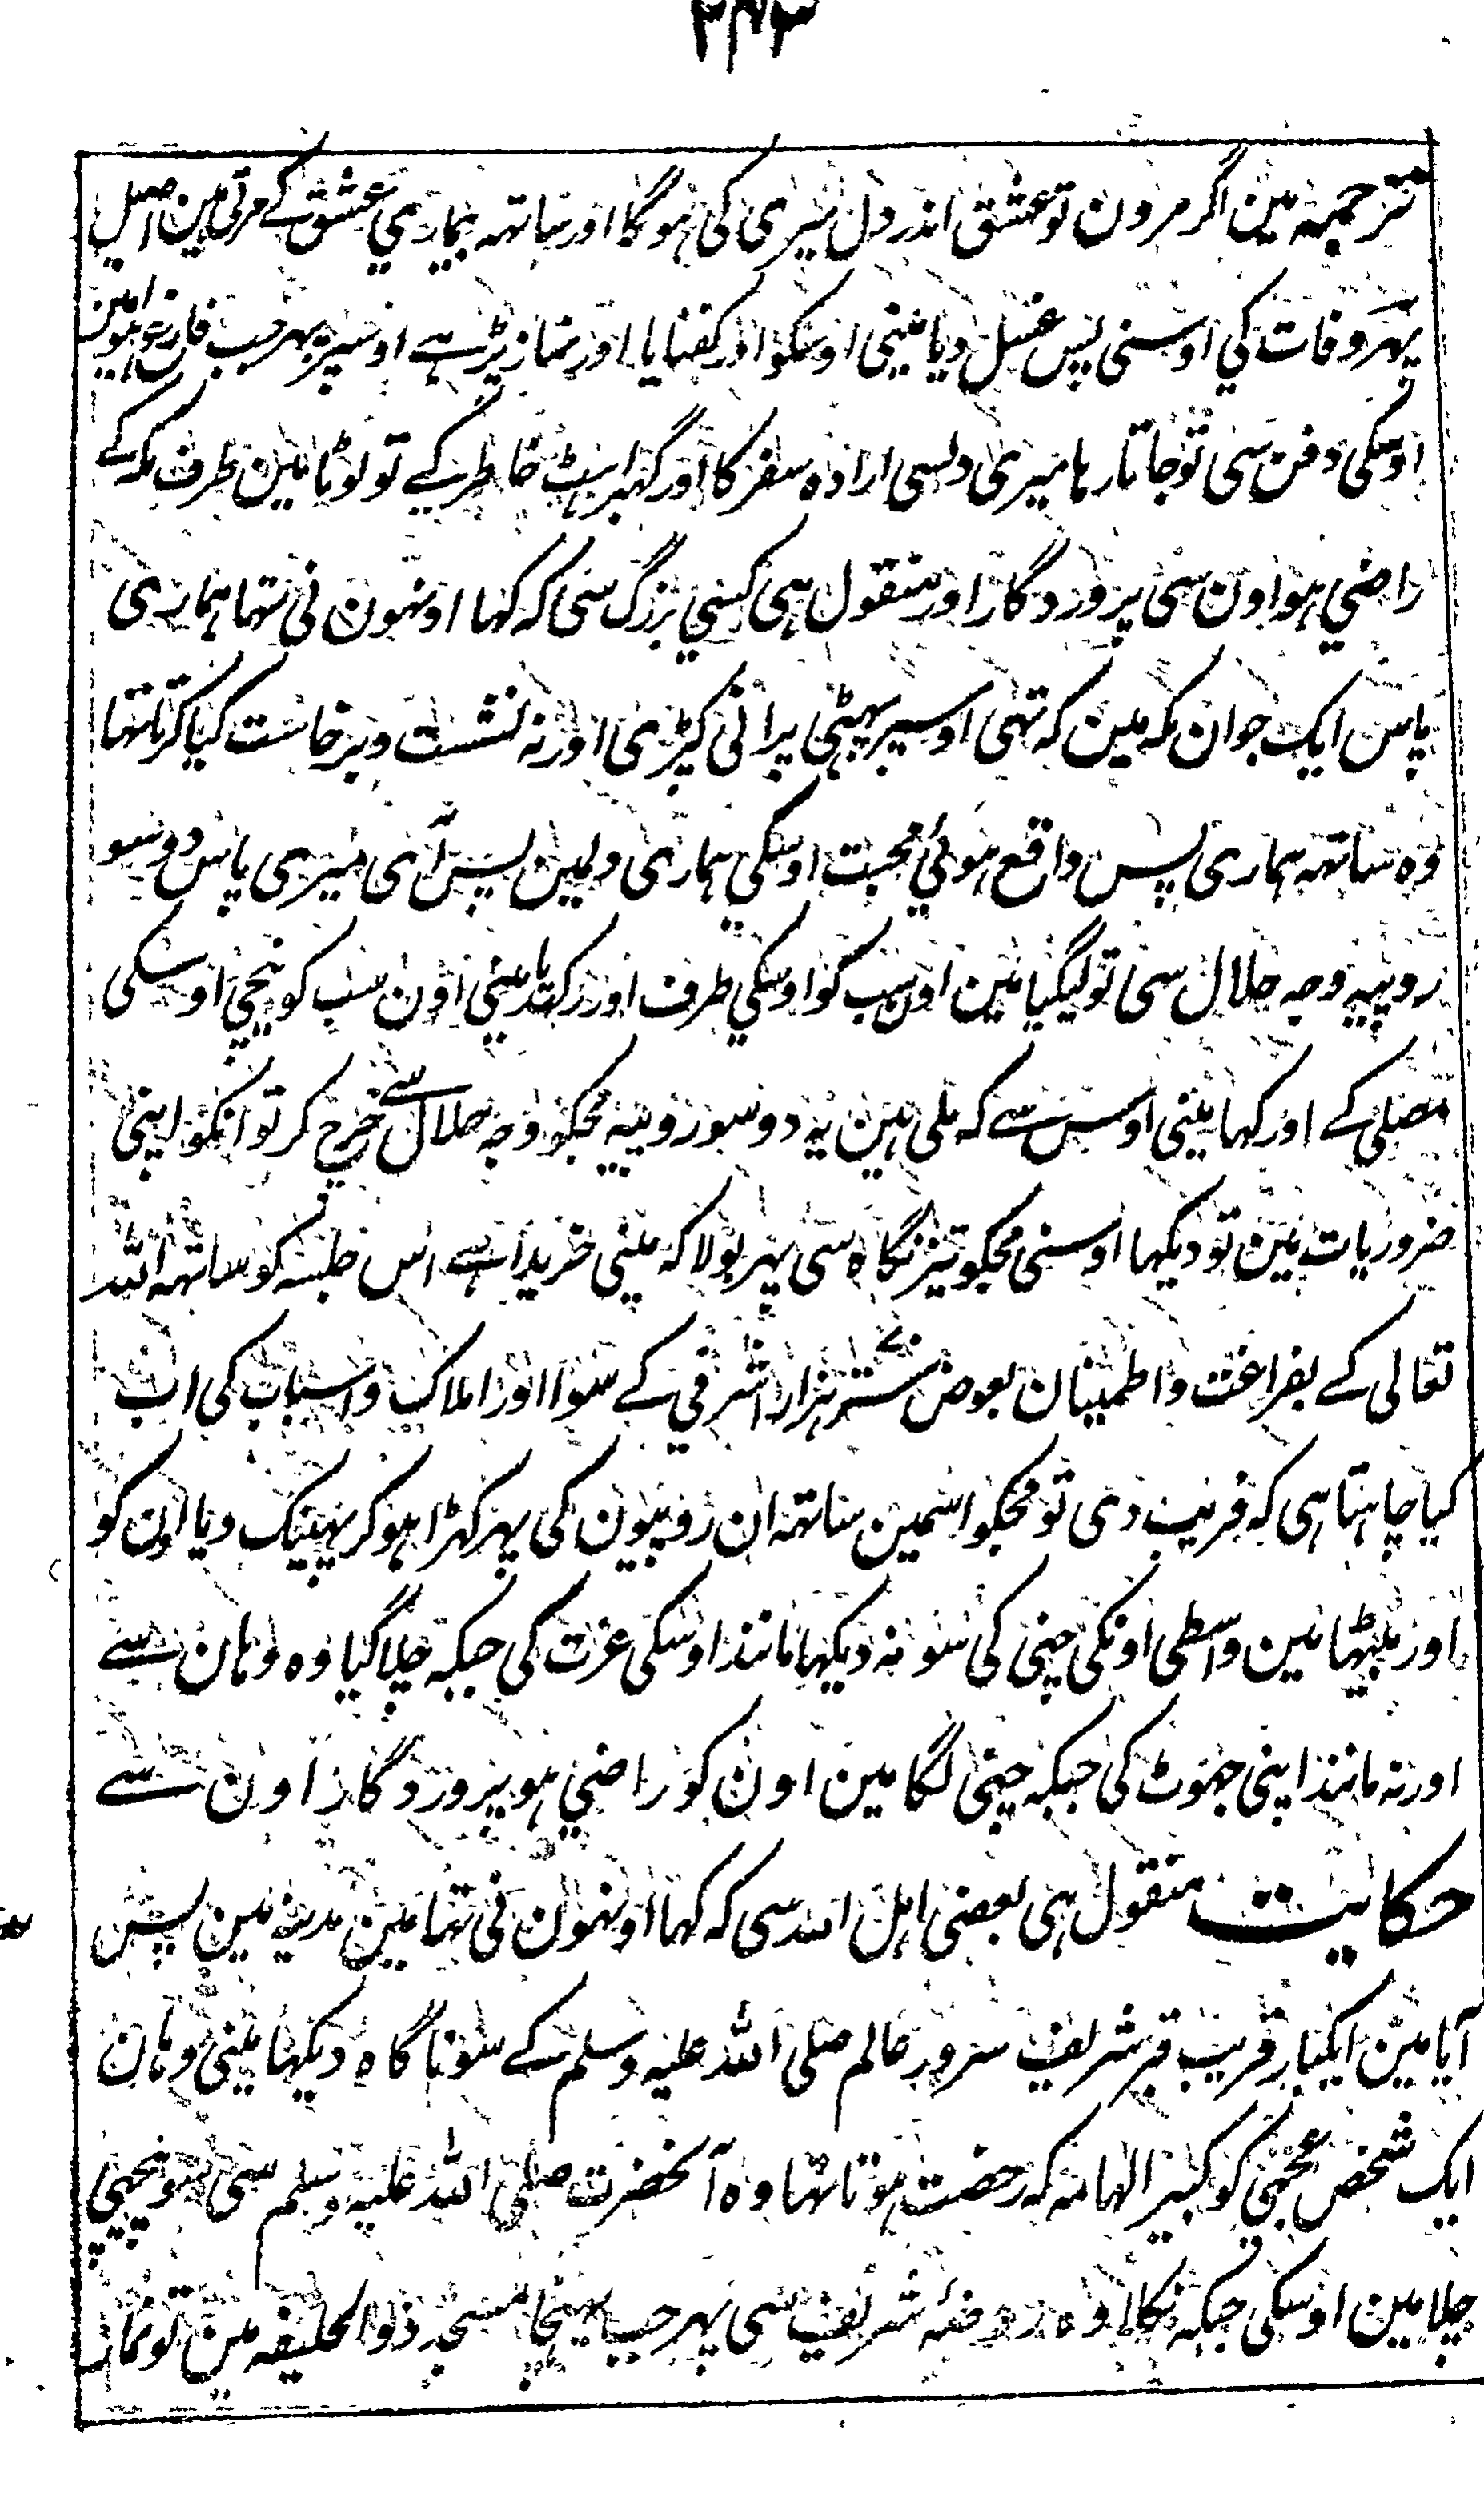 ترجمہ مین اگر مرون تو عشق اندر دل میری کی ہوگا اور ساتھہ بیماري عشق کے مرتی ہین اصیل
پہر وفات کي اوسنی پس غسل دیا مینی اوسکو اور کفنایا اور نماز پڑہے اوسپر پہر جب فارغ ہوا مین
اوسکی دفن سی تو جاتا رہا میری دلسی ارادہ سفر کا اور گہبراہٹ خاطر کے تو لوٹا مین طرف مکہ کے
راضي ہو اون سی پروردگار اور منقول ہی کسي بزرگ سی کہ کہا اونہون نی تہا ہماری
پاس ایک جوان مکہ مین کہ تہی اوسپر پہٹی پرانی کپڑی اور نہ نشست وبرخاست کیا کرتا تہا
وہ ساتہہ ہماری پس واقع ہوئي محبت اوسکي ہماری دلمین پس آی میری پاس دو سو
روپیہ وجہ حلال سی تو لیگیا مین اون سب کو اوسکي طرف اور رکہدیا مینی اون سب کو نیچي اوسکی
مصلی کے اور کہا مینی اوس سے کہ ملی ہین یہ دو سو روپیہ مجکو وجہ حلال سے خرچ کر تو انکو اپنی
ضروریات مین تو دیکہا اوسنی مجکو تیز نگاہ سی پہر بولا کہ مینی خریدا ہے اس جلسہ کو ساتہہ اللہ
تعالی کے بفراغت واطمینان بعوض ستر ہزار اشرفي کے سوا اور املاک واسباب کی اب
کیا چاہتا ہی کہ فریب دی تو مجکو اسمین ساتہہ ان روپیون کی پہر کہڑا ہوکر پہینک دیا اون کو
اور بیٹہا مین واسطی اونکی چنی کی سو نہ دیکہا مانند اوسکی عزت کی جبکہ چلا گیا وہ وہان سے
اور نہ مانند اپنی جہوٹ کی جبکہ چنی لگا مین اون کو راضي ہو پروردگار اون سے
حکایت منقول ہی بعضی اہل اللہ سی کہ کہا اونہون نی تہا مین مدینہ مین پس
آیا مین ایکبار قریب قبر شریف سرور عالم صلی اللہ علیہ وسلم کے سو ناگاہ دیکہا مینی وہان
ایک شخص عجمي کو کبیر الہامہ کہ رخصت ہوتا تہا وہ آنحضرت صلی اللہ علیہ وسلم سی سو پیچہي
چلا مین اوسکی جبکہ نکلا وہ روضہ شریف سی پہر جب پہنچا مسجد ذوالحلیفہ مین تو نماز